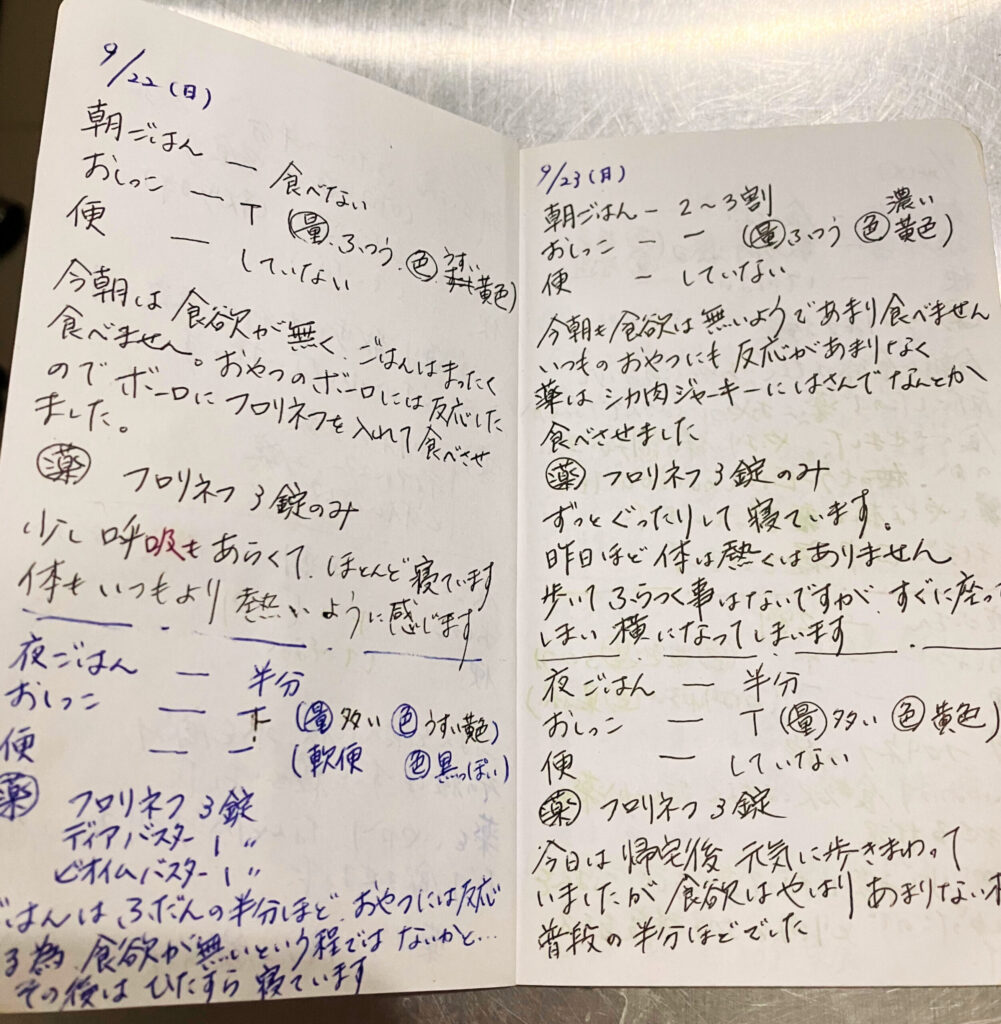 9/22(日)
朝ごはん ー 食べない
おしっこ ー T (量.ふつう.色.うすい黄色)
便 ー していない
今朝は食欲が無く、ごはんはまったく
食べません。おやつのボーロには反応した
のでボーロにフロリネフを入れて食べさせ
ました。
薬 フロリネフ3錠のみ
少し呼吸もあらくて、ほとんど寝ています
体もいつもより熱いように感じます
夜ごはん ー 半分
おしっこ ー T (量 多い 色 うすい黄色)
便 ー 一 (軟便 色 黒っぽい)
薬 フロリネフ 3錠
ディアバスター 1 〃
ビオイムバスター 1 〃
ごはんは、ふだんの半分ほど、おやつには反応
る為、食欲が無いという程ではないかと…
その後は ひたすら 寝ています
9/23(月)
朝ごはん ー 2〜3割
おしっこ ー 一 (量 ふつう 色 濃い黄色)
便 ー していない
今朝も食欲は無いようであまり食べません
いつものおやつにも反応があまりなく
薬はシカ肉ジャーキーにはさんでなんとか
食べさせました
薬 フロリネフ3錠のみ
ずっとぐったりして寝ています。
昨日ほど体は熱くはありません
歩いてふらつく事はないですが、すぐに座っ
しまい横になってしまいます
夜ごはん ー 半分
おしっこ ー T (量 多い 色 黄色)
便 ー していない
薬 フロリネフ 3錠
今日は帰宅後元気に歩きまわって
いましたが食欲はやはりあまりない
普段の半分ほどでした